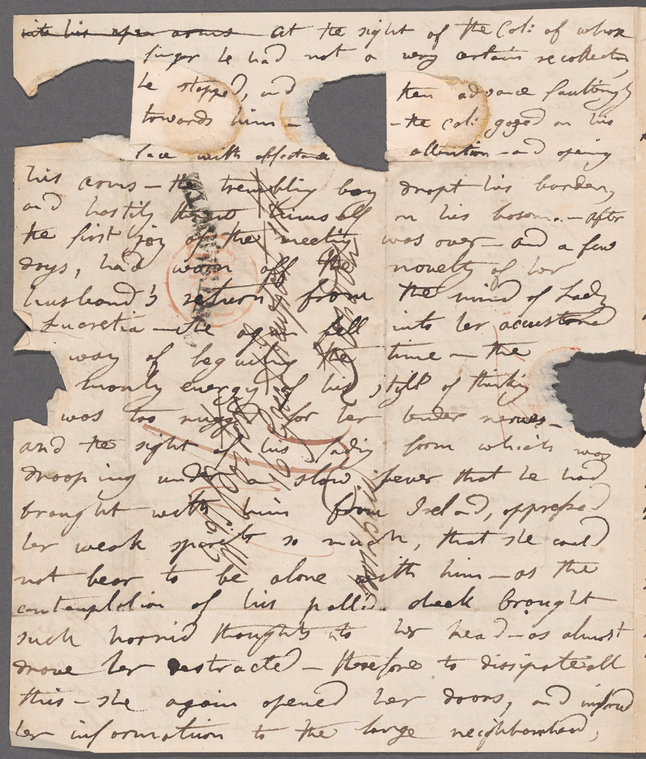 into his open arms at the sight of the Col: of whose
finger he had not a very certain recollection,
he stopped, and then advanced faultringly
towards him – – the Col: gazed on his
face with affectionate attention – and opening
his arms – the trembling boy dropt his burden,
and hastily threw himself on his bosom. – after
the first joy of the meeting was over – and a few
days, had worn off the novelty of her
husband's return from the mind of Lady
Lucretia – she again fell into her accustomed
way of beguiling the time – the
manly energy of his style of thinking
was too rugged for her tender nerves –
and the sight of his fading form which was
drooping under a slow fever that he had
brought with him from Ireland, oppressed
her weak spirits so much, that she could
not bear to be alone with him – as the
contemplation of his pallid cheek brought
such horrid thoughts to her head – as almost
drove her distracted – therefore to dissipate all
this – she again opened her doors, and
her information to the large neighbourhood,